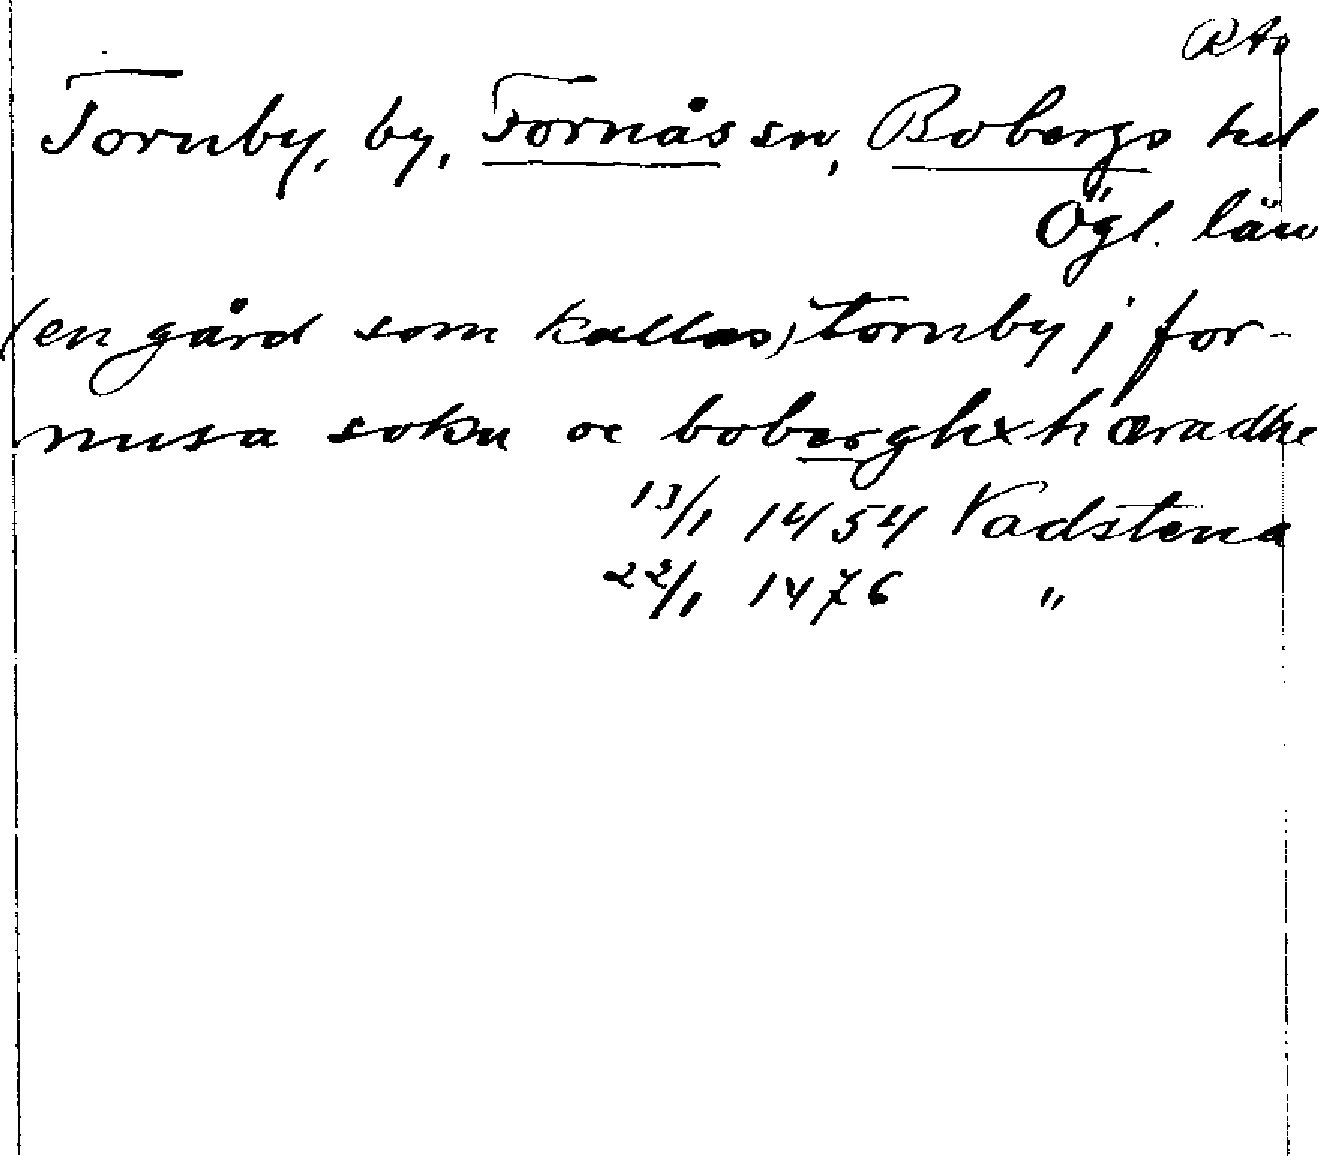 RAo
Tornby, by, Fornåsa sn, Bobergs hd
Ögl. län
(en gård som kallas) tornby j for-
nusa sokn oc boberghx hæradhe
13/1 1454 Vadstena
22/1 1476 "